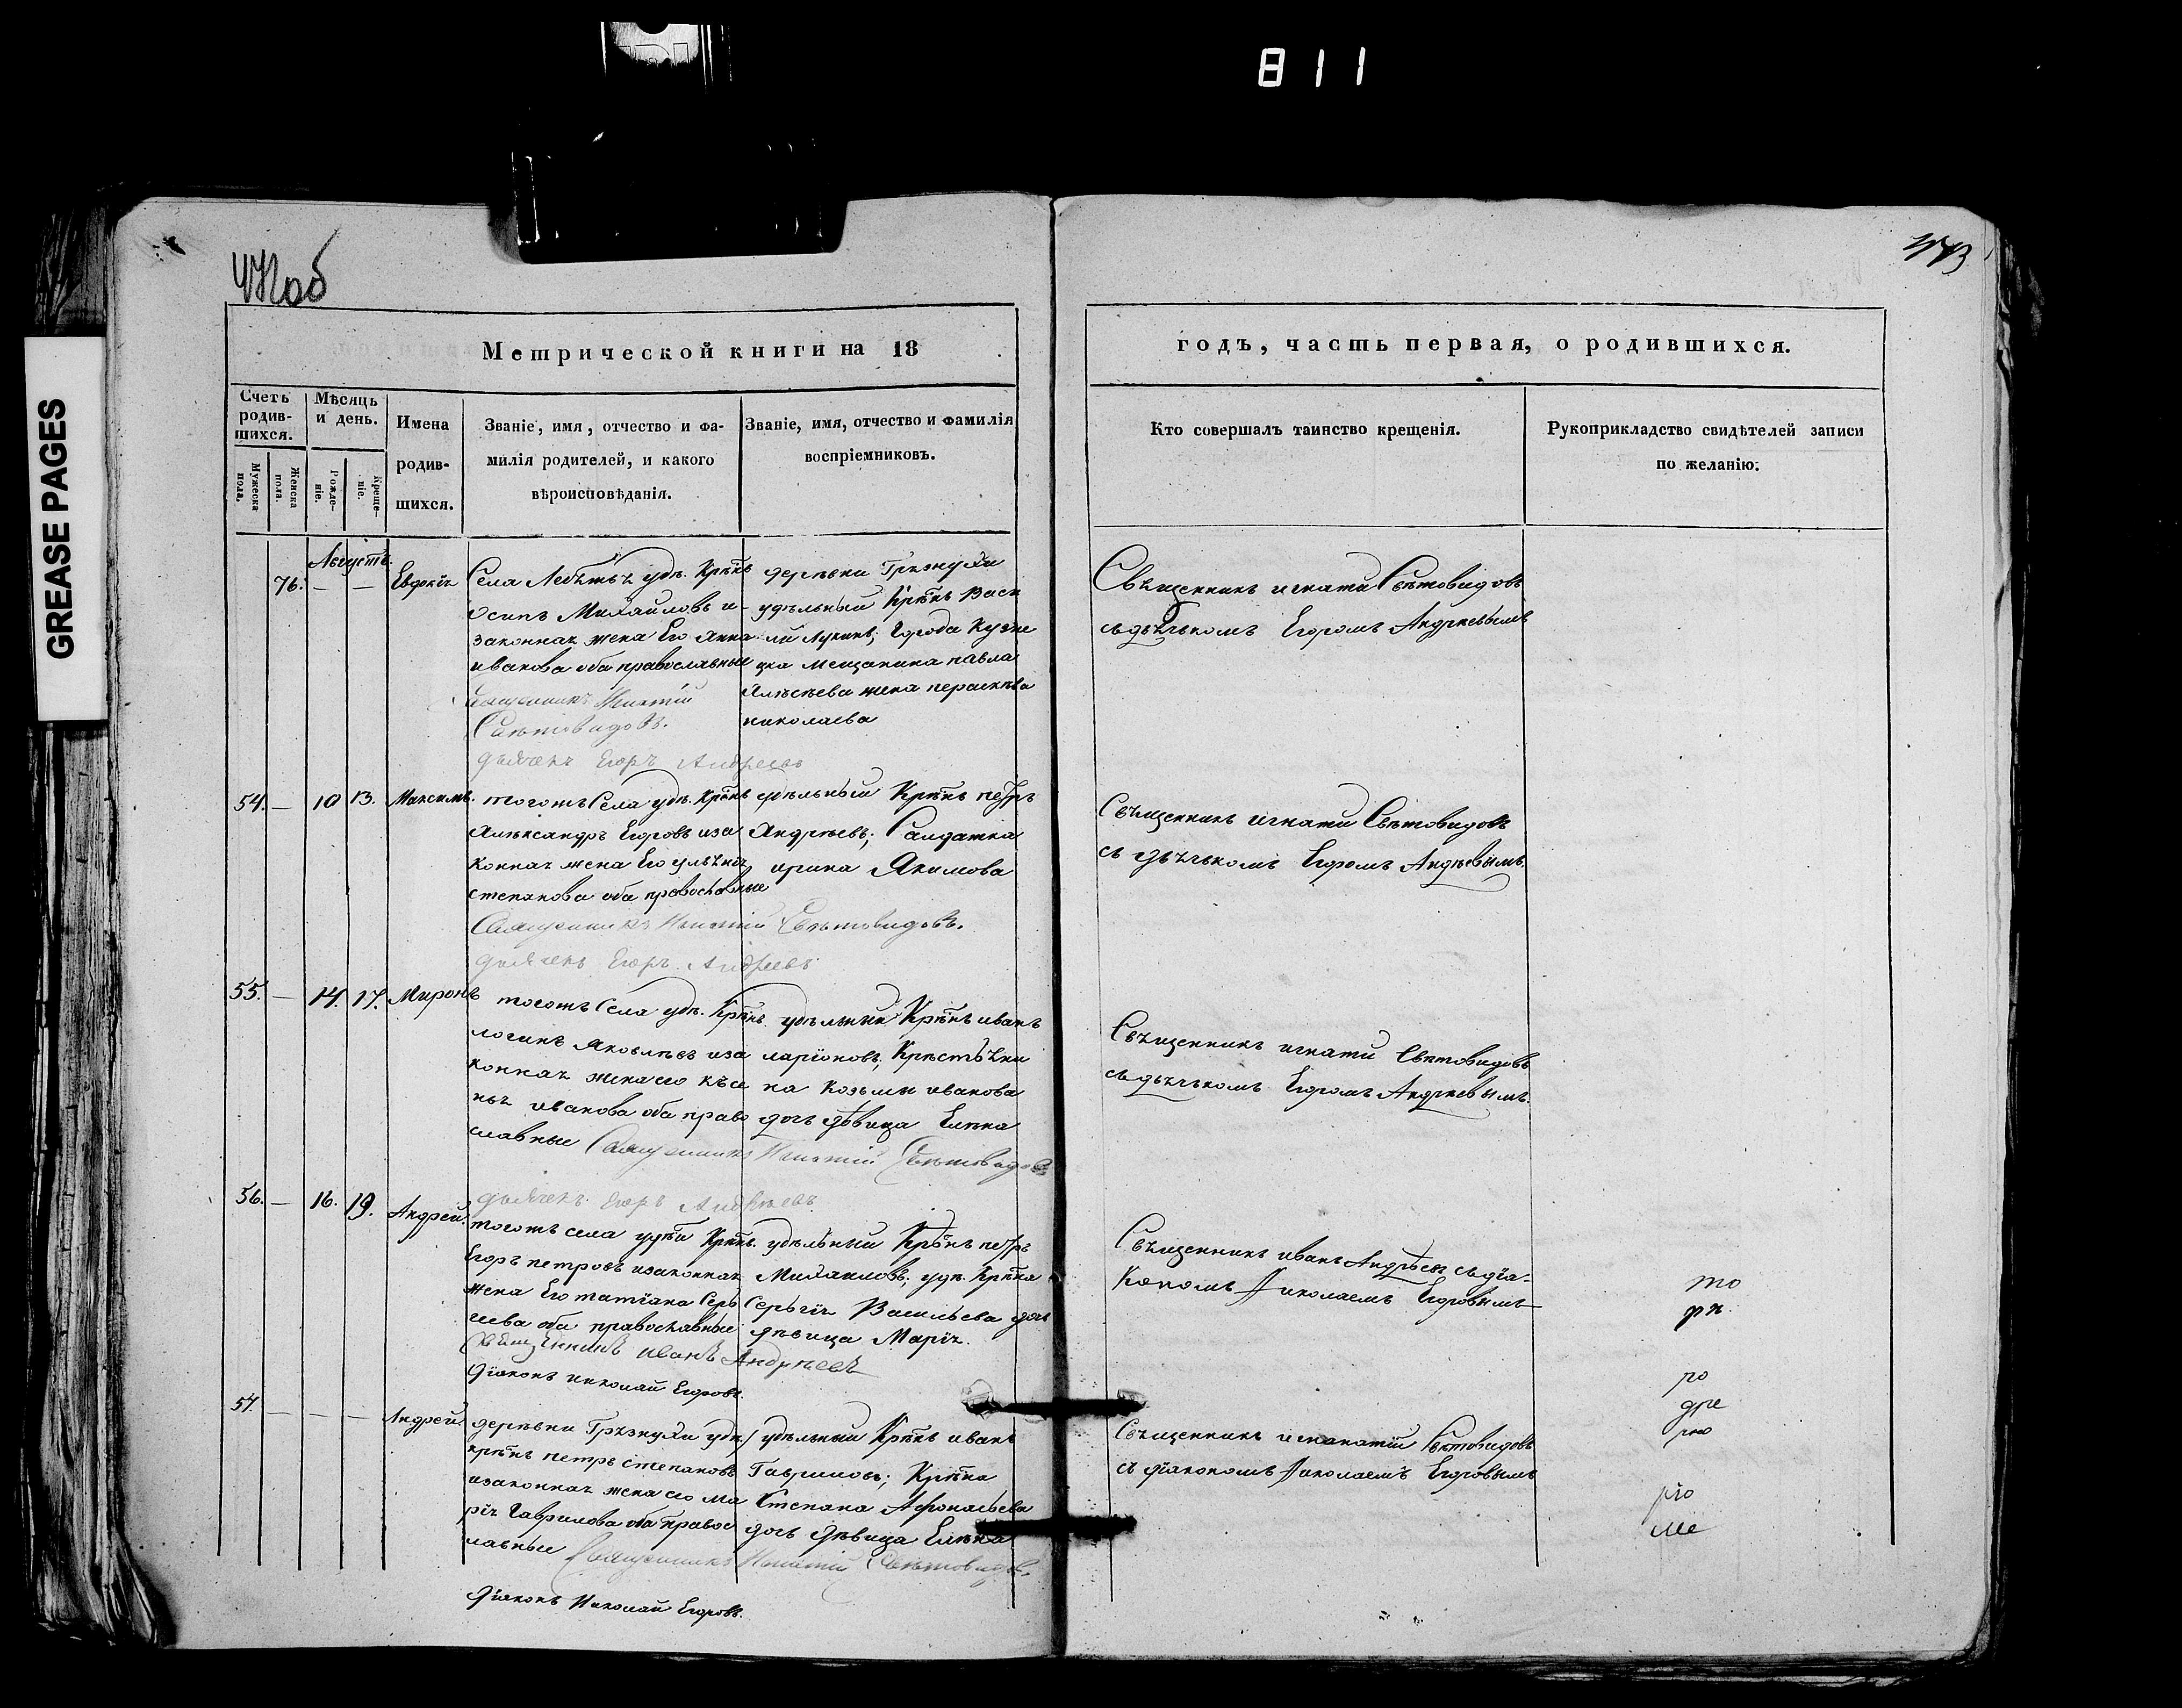 811
GREASE PAGES
Метрической книги на 18
годъ, часть первая, о родившихся.
Счетъ родив-шихся.
Мужеска пола.
Женска пола.
Мѣсяцъ и день.
Рожде-ніе.
Креще-ніе.
Имена
родив-
шихся.
Званіе, имя, отчество и фа-
милія родителей, и какого
вѣроисповѣданія.
Званіе, имя, отчество и фамилія
воспріемниковъ.
Кто совершалъ таинство крещенія.
Рукоприкладство свидѣтелей записи
по желанію.
Августъ.
76. — — Евдокіѧ
Села удѣ. Крѣнъ
Осипъ Михайловъ и
законнаѧ жена Его Анна
иванова оба православные
Свѧщенникъ Игнатій
Свѣтовидовъ.
дьячекъ Егоръ Андреевъ
деревни Грѧзнухи
удѣльный Крѣнъ Васи
лій Лукинъ; города Кузне
цка мещанина павла
Алѣксѣева жена
николаева
Свѧщенникъ игнатій Свѣтовидовъ
съ дьѧчькомъ Егоромъ Андреевымъ
54. — 10 13. Максимъ.
тогожъ Села удѣ. Крѣнъ
Алѣксандръ Егоровъ иза
коннаѧ жена Его
степанова оба православные
Свящснникъ Игнатій Свѣтовидовъ.
дьячекъ Егоръ Андреевъ
удѣльный Крѣнъ петръ
Андрѣевъ; Салдатка
ирина Якимова
Свѧщенникъ игнатій Свѣтовидовъ
съ дьѧчькомъ Егоромъ Андреевымъ.
55. — 14. 17. Миронъ
тогожъ Села удѣ. Крѣнъ
логинъ Яковлѣвъ иза
коннаѧ жена его късе
ньѧ иванова оба право
славные Священникъ Игнатій Свѣтовидовъ
дьячекъ Егоръ Андреевъ
удѣльный Крѣнъ иванъ
ларіоновъ; Крѣстьѧни
на Козьмы иванова
дочь дѣвица Елѣна
Свѧщенникъ игнатій Свѣтовидовъ
съ дьѧчькомъ Егоромъ Андреевымъ.
56. — 16. 19. Андрей.
тогожъ села Крѣнъ.
Егоръ петровъ изаконнаѧ
жена Его татіана Серь
геева оба православные
Свѧщенникъ иванъ Андрѣевъ
Діаконъ николай Егоровъ.
удѣльный Крѣнъ петръ
Михаиловъ; удѣ. Крѣна
Серьгіѧ Васильева дочь
дѣвица Маріѧ.
Свѧщенникъ иванъ Андрѣевъ съ діа-
кономъ Николаемъ Егоровымъ
57. — — — Андрей
деревни Грѧзнухи удѣ
крѣнъ петръ степановъ
изаконнаѧ жена его Ма
ріѧ Гаврилова оба правос
лавные Священникъ Игнатій Свѣтовидовъ.
Діаконъ Николай Егоровъ.
удѣльный Крѣнъ иванъ
Гавриловъ; Крѣна
Степана Афонасьева
дочь дѣвица Елѣна
Свѧщенникъ Свѣтовидовъ
съ діакономъ Николаемъ Егоровымъ
то
рѣ
ро
дре
рію
ріо
ме